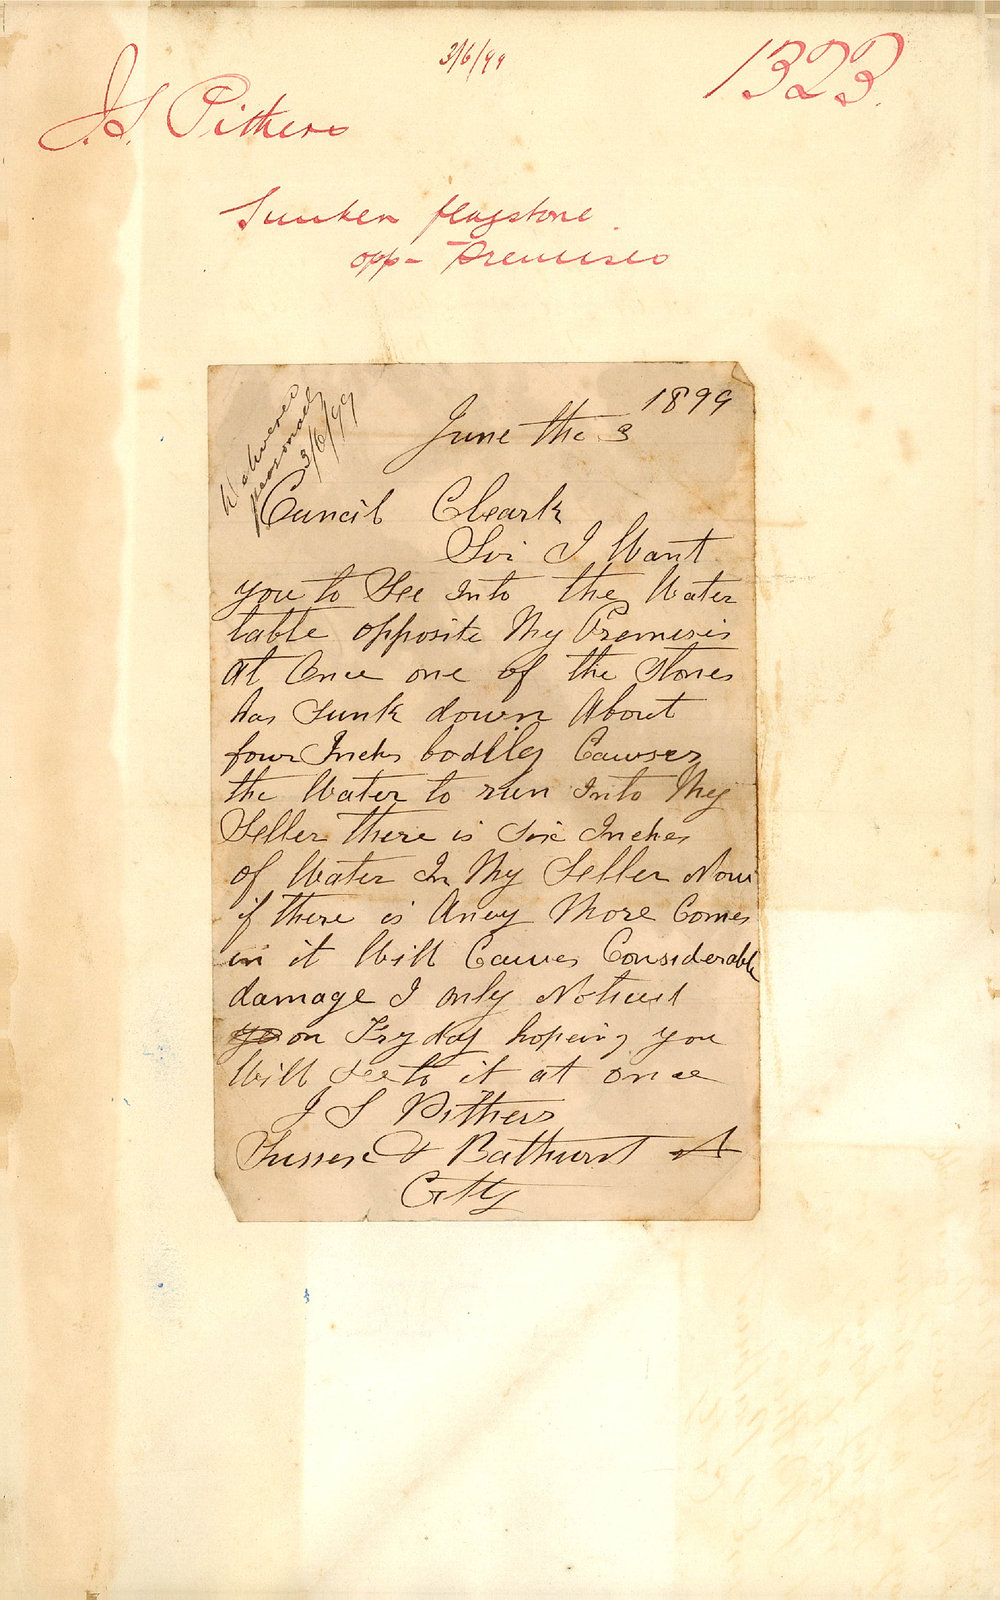 3/6/99
1323.
J.S. Pithers
Sunken flagstone
opp- Premises
Delivered
personally
3/6/99
1899
June the 3
Cuncil Cleark
Sir I Want
you to See into the Water
table opposite My Premisis
at Once one of the Stones
has Sunk down About
four Inches bodilly Causes
the Water to run Into My
Seller there is Six Inches
of Water In My Seller Now
if there is Aney More Comes
in it Will Causes Considerable
damage I only Noticest
on Fryday hopeing you
Will See to it at once
J S Pithers
Sussex & Bathurst St
City